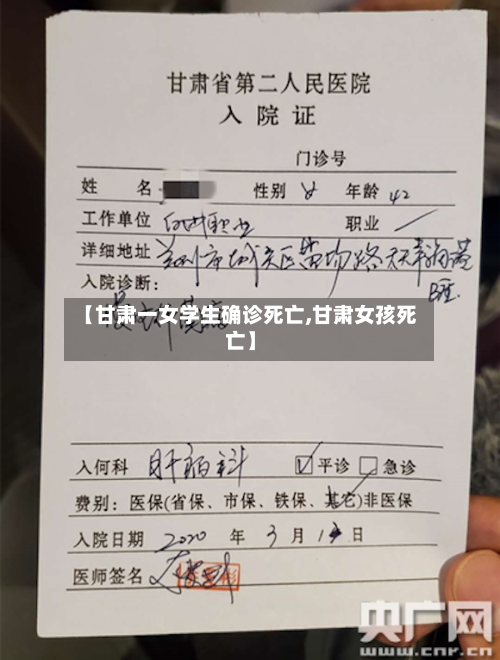 甘肃省第二人民医院
入 院 证
门诊号
姓 名 性别 女 年龄 42
工作单位 职业
详细地址 兰州市城关区苗圃路天丰鸿运
B座
入院诊断：
【甘肃一女学生确诊死亡,甘肃女孩死
亡】
入何科 肝病科 ☑平诊 □急诊
费别：医保(省保、市保、铁保、其它)非医保
入院日期 2020 年 3 月 日
医师签名
央广网
www.cnr.cn